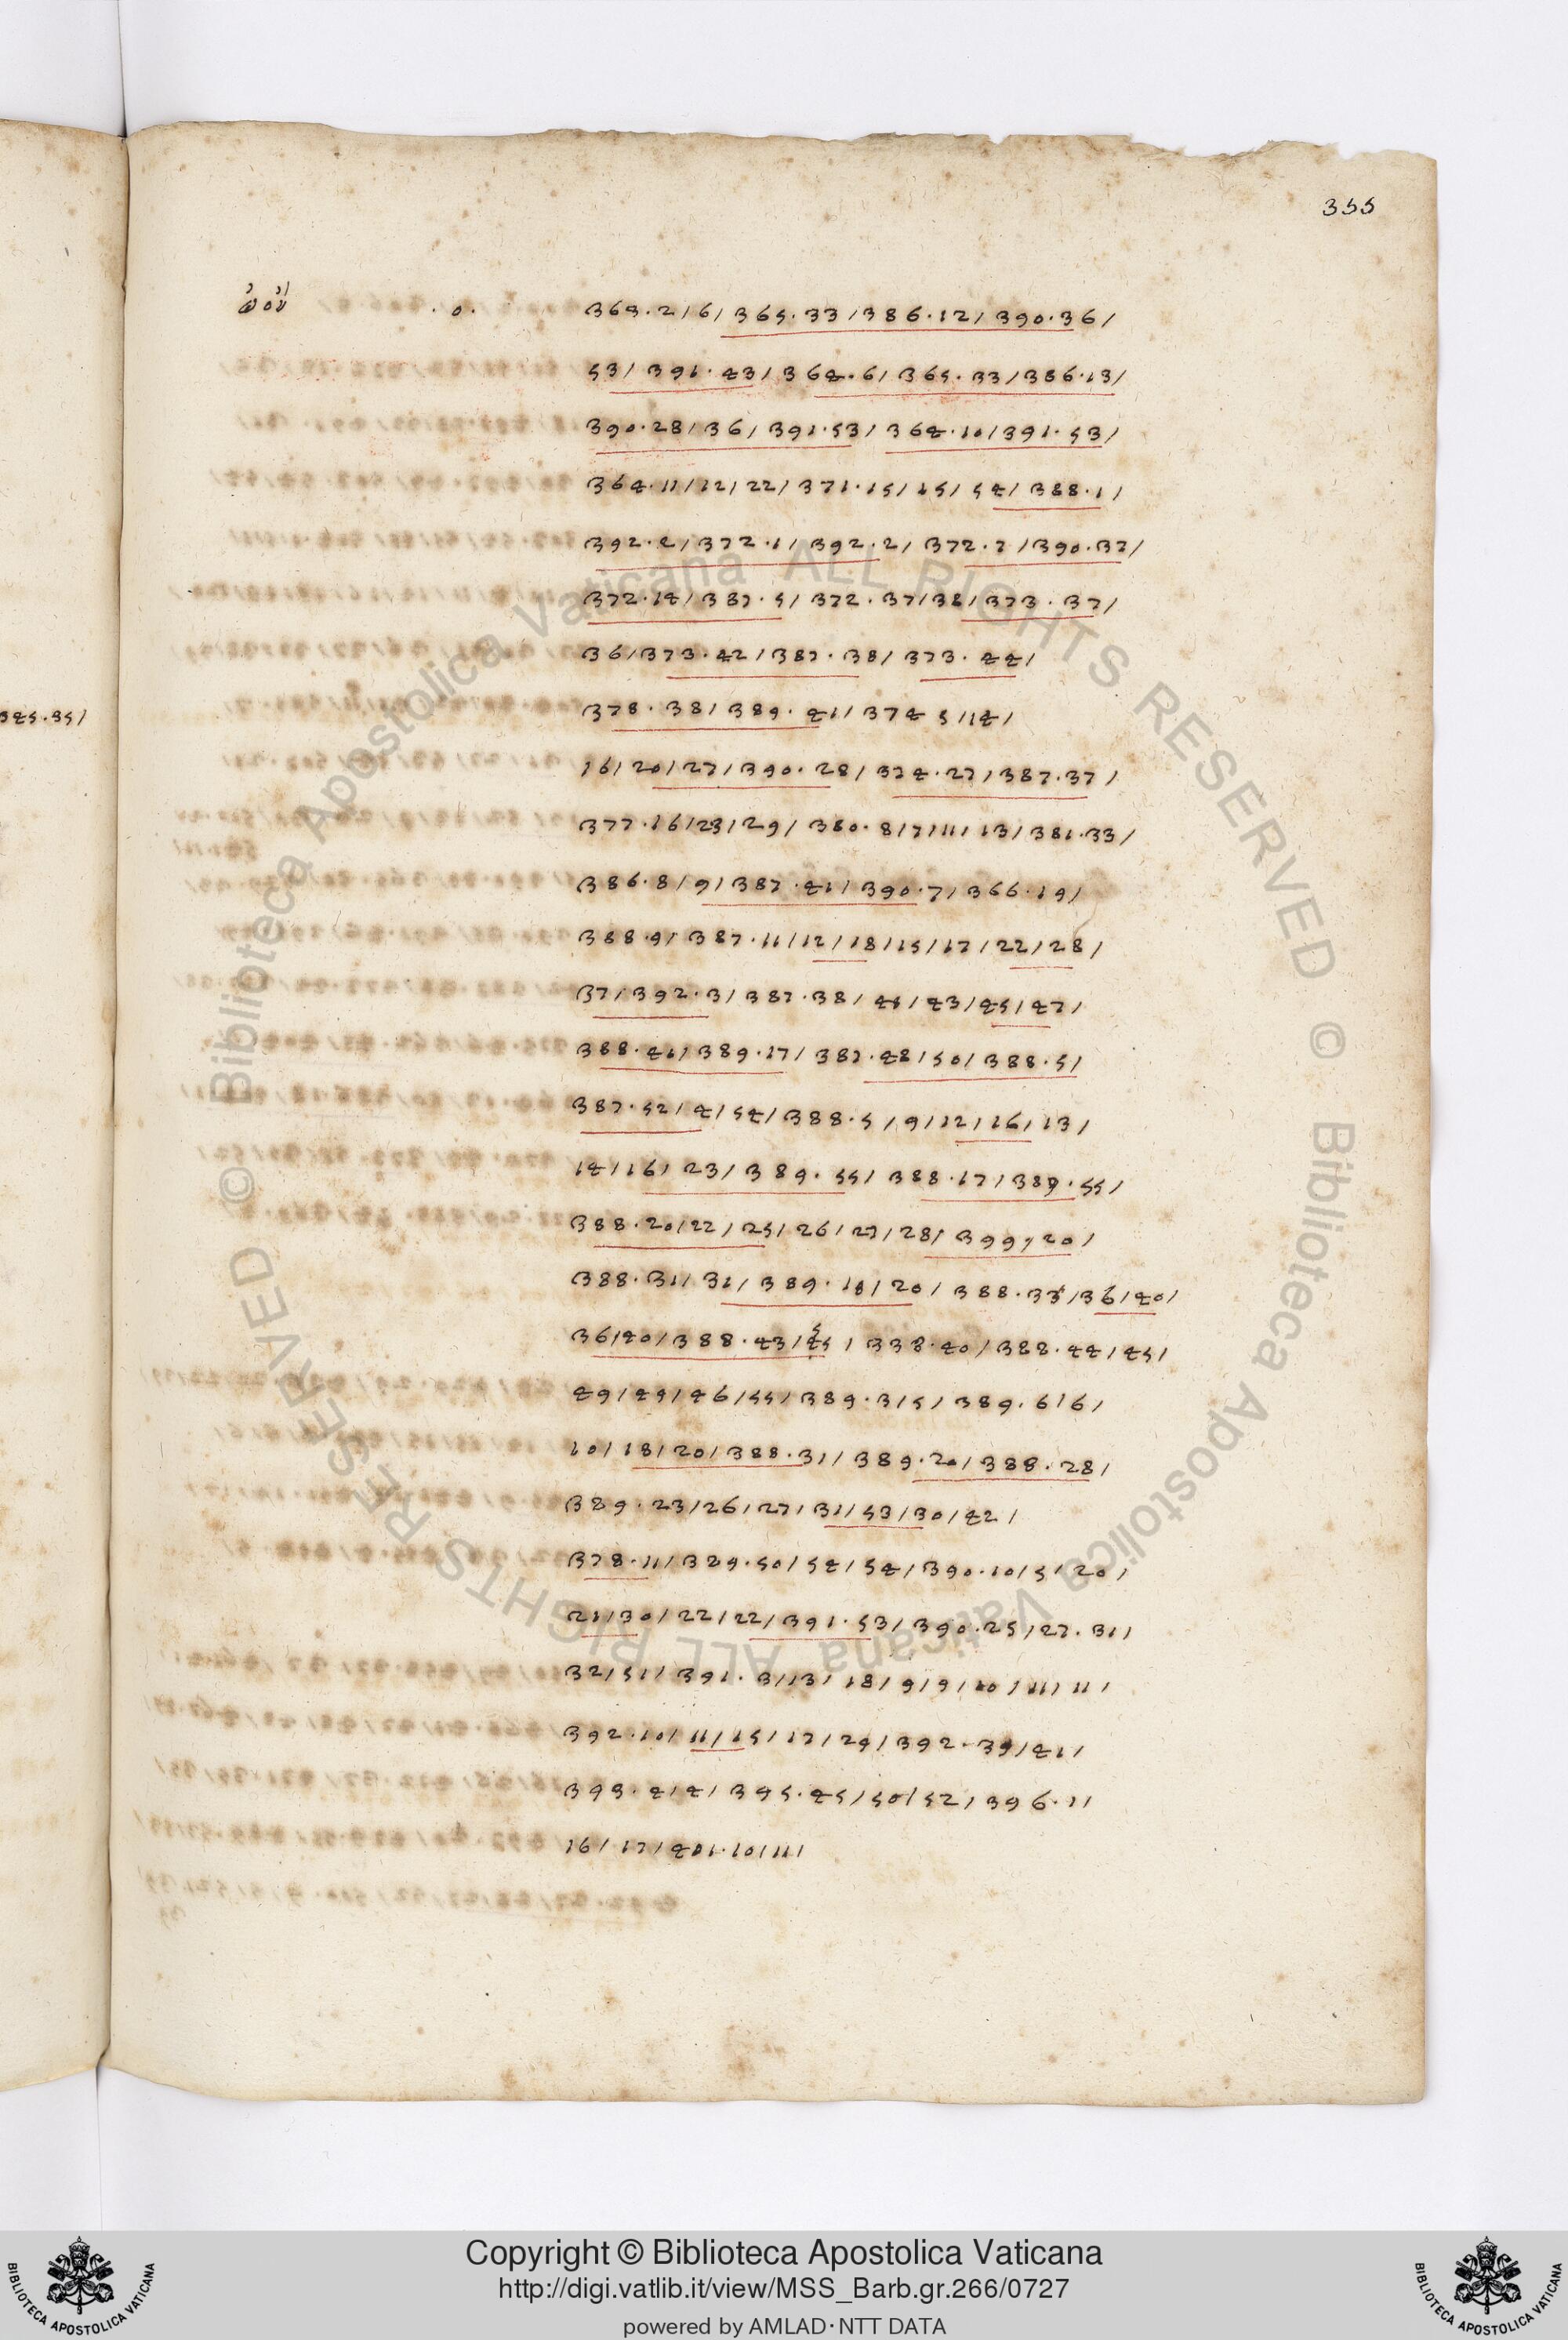 355
ὠόν . ο . 363.2/6/365.33/386.12/390.36/
53/391.43/364.6/365.33/386.13/
390.28/36/391.53/364.10/391.53/
364.11/12/22/371.15/15/54/388.1/
392.2/372.1/392.2/372.7/390.37/
345.35/
372.14/387.5/372.37/38/373.37/
36/373.42/387.38/373.44/
378.38/389.41/374 5/14/
16/20/27/390.28/374.27/387.37/
377.16/23/29/380.8/7/11/13/381.33/
386.8/9/387.41/390.7/366.19/
388.9/387.11/12/18/15/17/22/28/
37/392.3/387.38/41/43/45/47/
388.41/389.17/387.48/50/388.5/
387.52/4/54/388.5/9/12/16/13/
14/16/23/389.55/388.17/389.55/
388.20/22/25/26/27/28/399/20/
388.31/31/389.18/20/388.33/36/40/
36/40/388.43/45/338.40/388.44/45/
49/49/46/55/389.3/5/389.6/6/
10/18/20/388.31/389.20/388.28/
389.23/26/27/31/53/30/42/
378.11/329.50/54/54/390.10/5/20/
21/30/22/22/391.53/390.25/27.31/
32/51/391.3/13/18/9/9/10/11/11/
392.10/11/15/17/29/392.39/41/
393.4/4/395.45/50/52/396.1/
16/17/401.10/11/
Copyright © Biblioteca Apostolica Vaticana
http://digi.vatlib.it/view/MSS_Barb.gr.266/0727
powered by AMLAD·NTT DATA
BIBLIOTECA APOSTOLICA VATICANA
BIBLIOTECA APOSTOLICA VATICANA
© Biblioteca Apostolica Vaticana ALL RIGHTS RESERVED © Biblioteca Apostolica Vaticana ALL RIGHTS RESERVED